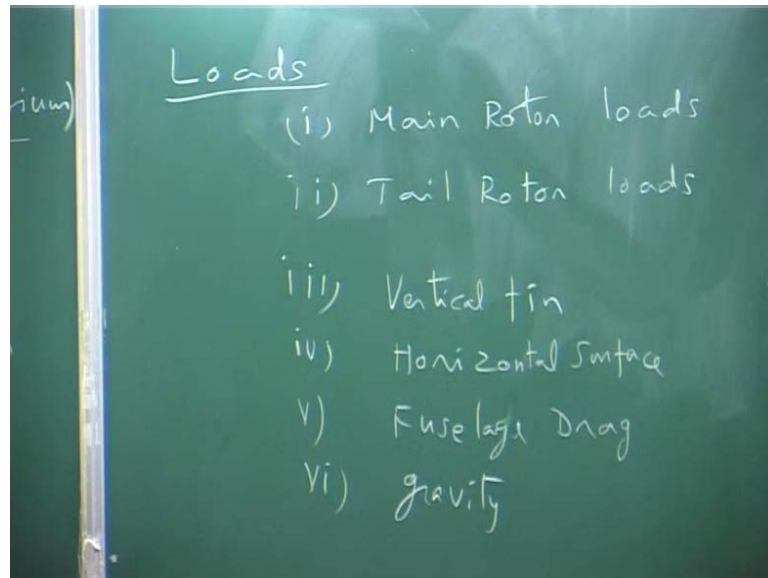 ium)
Loads
(i) Main Rotor loads
ii) Tail Rotor loads
iii) Vertical fin
iv) Horizontal Surface
v) Fuselage Drag
vi) gravity